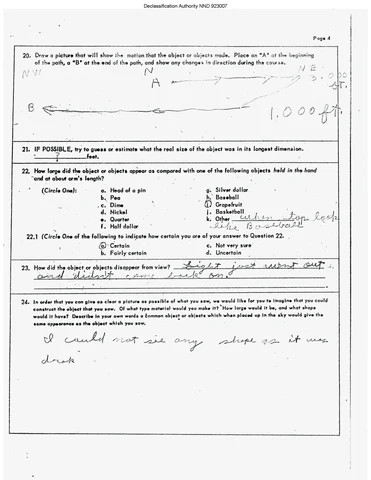 Declassification Authority NND 923007
Page 4
20. Draw a picture that will show the motion that the object or objects made. Place an "A" at the beginning
of the path, a "B" at the end of the path, and show any changes in direction during the course.
NW N NE
A 3,000
ft.
B
1,000 ft.
21. IF POSSIBLE, try to guess or estimate what the real size of the object was in its longest dimension.
? feet.
22. How large did the object or objects appear as compared with one of the following objects held in the hand
and at about arm's length?
(Circle One): a. Head of a pin g. Silver dollar
b. Pea h. Baseball
c. Dime i. Grapefruit
d. Nickel j. Basketball
e. Quarter k. Other when top look
f. Half dollar like Baseball
22.1 (Circle One of the following to indicate how certain you are of your answer to Question 22.
a. Certain c. Not very sure
b. Fairly certain d. Uncertain
23. How did the object or objects disappear from view? Light just went out
and didn't come back on.
24. In order that you can give as clear a picture as possible of what you saw, we would like for you to imagine that you could
construct the object that you saw. Of what type material would you make it? How large would it be, and what shape
would it have? Describe in your own words a common object or objects which when placed up in the sky would give the
same appearance as the object which you saw.
I could not see any shape as it was
dark